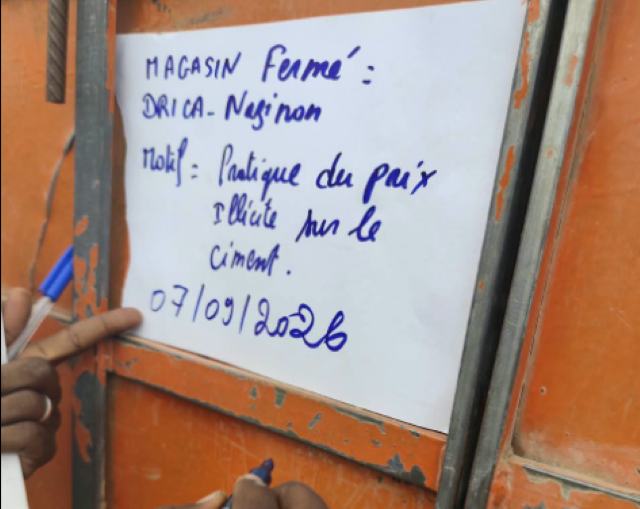 MAGASIN Fermé :
DRICA - Naginon
Motif : Pratique du prix
Illicite sur le
ciment.
07/09/2026